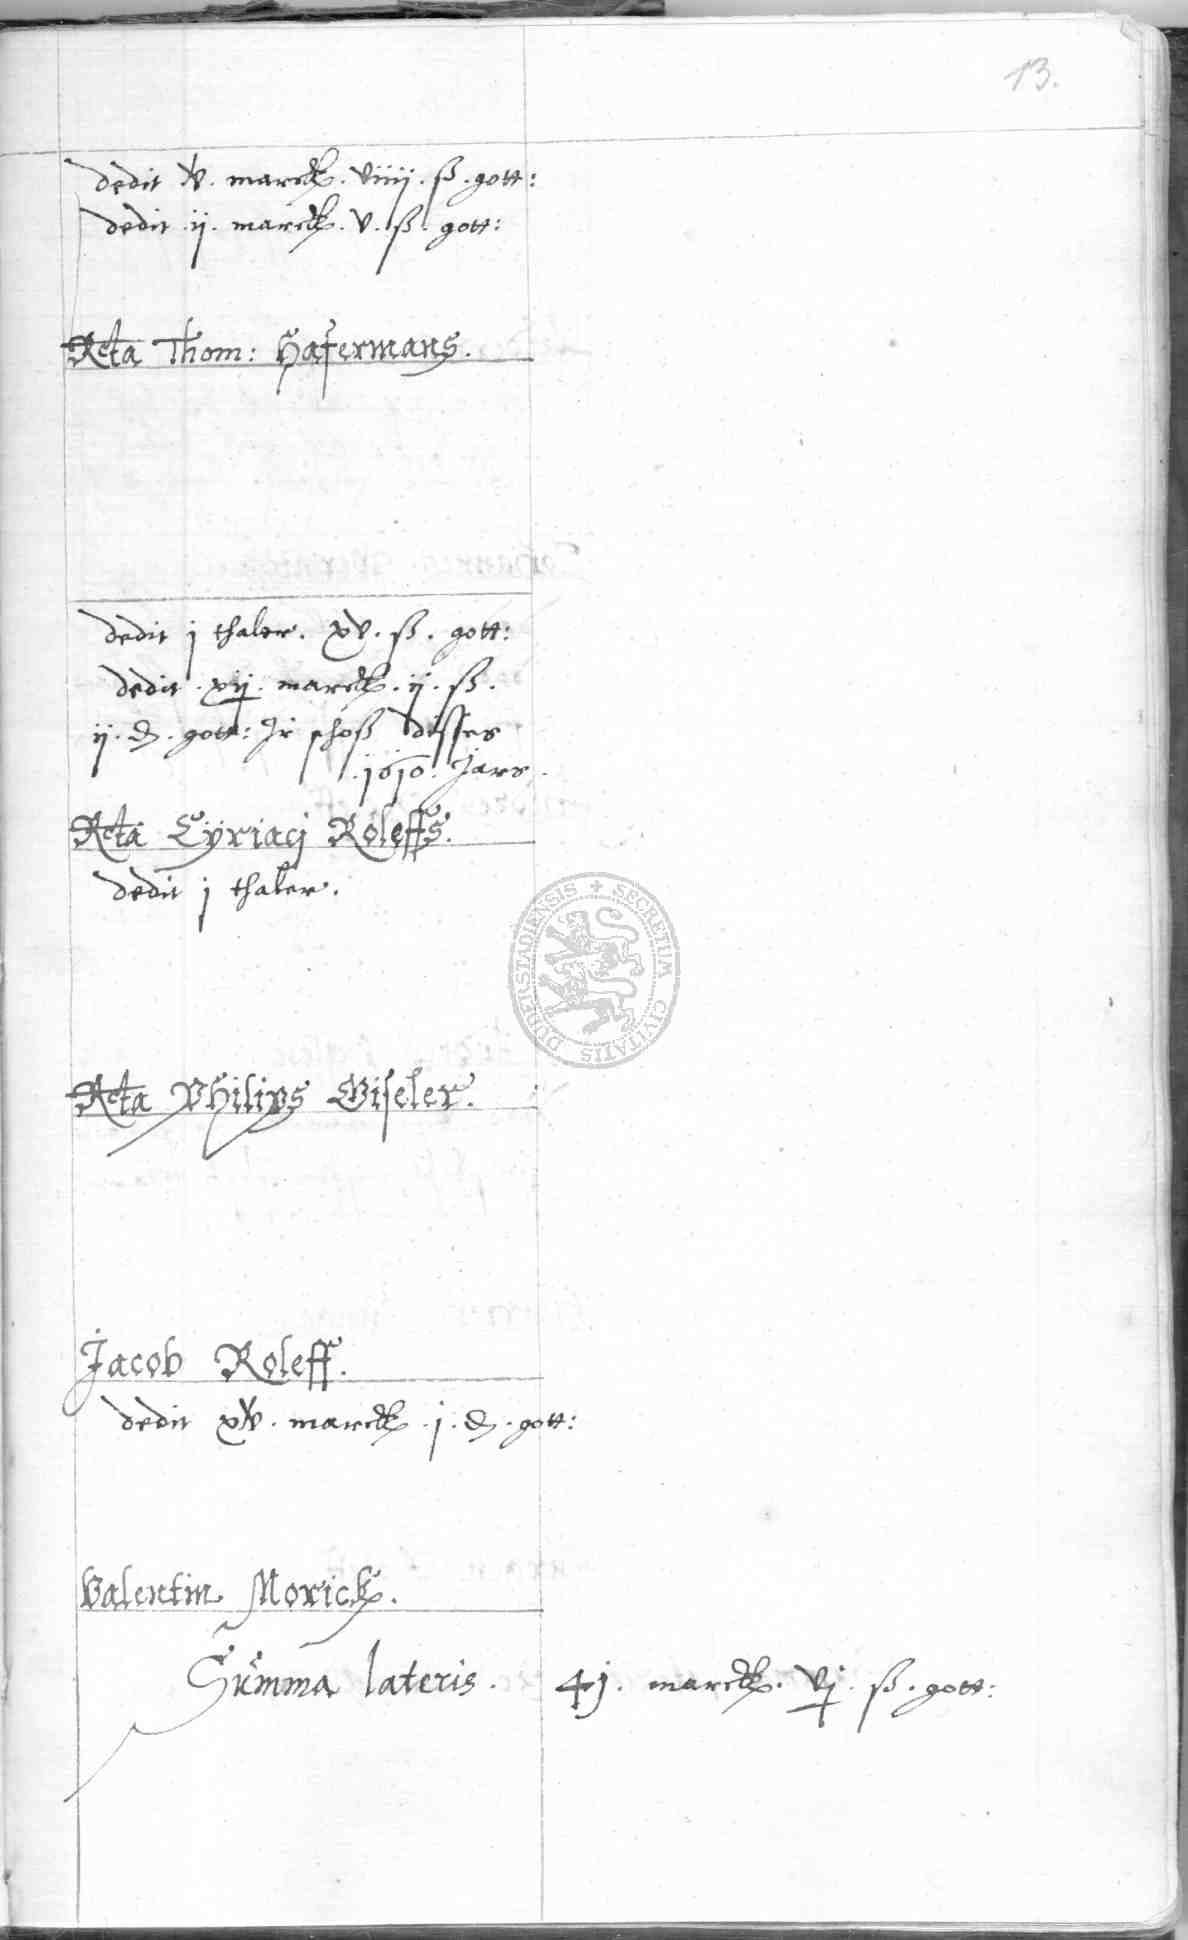 13.
dedit v. marck. viiij. ß. gott:
dedit .ij. marck. v. ß. gott:
Rcta Thom: Hafermans.
dedit j thaler. xv. ß. gott:
dedit .xij. marck. ij. ß.
ij. d. gott: Ir schoß disses
.1610. Jars.
Rcta Cÿriacj Roleffs.
dedit j thaler.
DUDERSTADIENSIS + SECRETUM CIVITATIS
Rcta Philips Giseler.
Jacob Roleff.
dedit xv. marck. j. d. gott:
Valentin Morick.
Summa lateris. 4j. marck. vj. ß. gott: